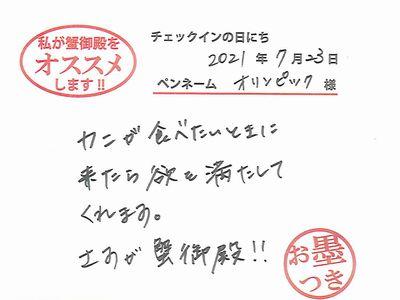 私が蟹御殿を
オススメ
します!!
チェックインの日にち
2021年7月23日
ペンネーム オリンピック 様
カニが食べたいときに
来たら欲を満たして
くれます。
さすが蟹御殿!!
お墨
つき